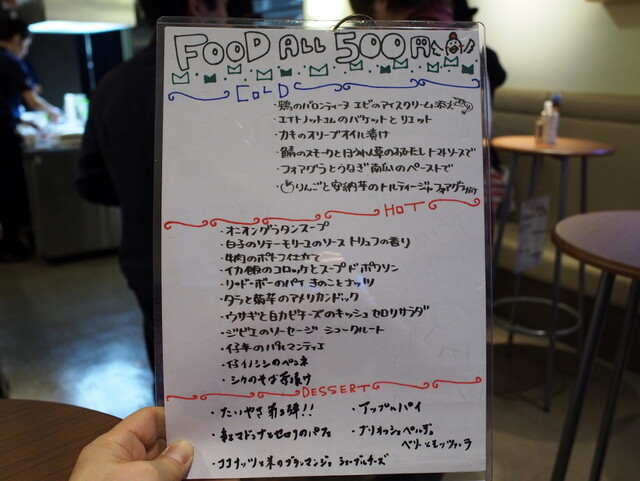 FOOD ALL 500円
COLD
・鶏のバロンティーヌ エビのアイスクリーム添え
・エイトノットコムのバケットとリエット
・カキのオリーブオイル漬け
・鯖のスモークとほうれん草のおひたし トマトソースで
・フォアグラとうなぎ 南瓜のペーストで
・りんごと安納芋のトルティージャ フォアグラ
HOT
・オニオングラタンスープ
・白子のソテーモリーユのソース トリュフの香り
・牛肉のポトフ仕立て
・イカ飯のコロッケとスープドポワソン
・リードボーのパイ きのことナッツ
・タラと菊芋のアメリカンドック
・ウサギと白カビチーズのキッシュ セロリサラダ
・ジビエのソーセージ シュークルート
・仔羊のパルマンティエ
・仔イノシシのペンネ
・シカのそば茶漬け
DESSERT
・たいやき 第2弾!!
・アップルパイ
・紅マドンナとセロリのパフェ
・ブリオッシュペルデュ
ベリーとモッツァレラ
・ココナッツと米のブランマンジェ シェーブルチーズ